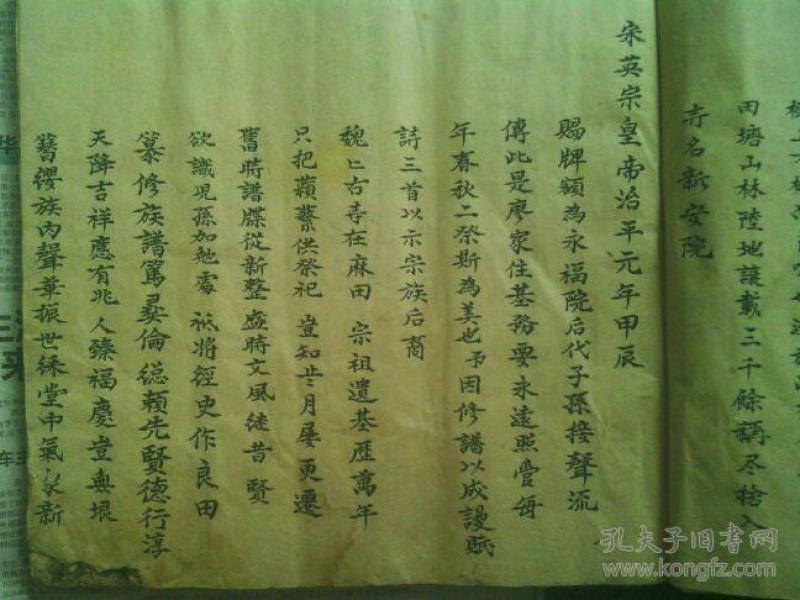 田塘山林陸地議載三千餘稱尽捨入
寺名新安院
宋英宗皇帝治平元年甲辰
賜牌額為永福院后代子孫接聲流
傳此是廖家住基務要永遠照管每
年春秋二祭斯為美也予因修譜以成謾賦
詩三首以示宗族后裔
魏匕古寺在麻田 宗祖遺基歷萬年
只把蘋蘩供祭祀 豈知歲月屡更遷
舊時譜牒從新整 盛時文風徒昔賢
欲識児孫如勉處 祗將經史作良田
纂修族譜篤彛倫 總頼先賢德行淳
天降吉祥應有兆 人臻福慶豈無垠
簪纓族内聲華振 世綵堂中氣象新
孔夫子旧书网
www.kongfz.com